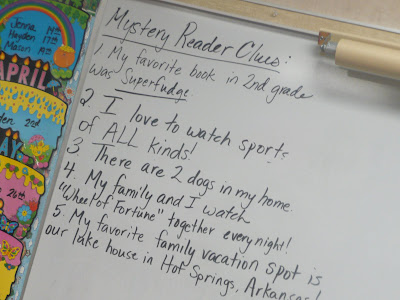 Jenna 14th
Hayden 17th
Mason 19th
APRIL
Mystery Reader Clues:
1. My favorite book in 2nd grade
was Superfudge.
2. I love to watch sports
of ALL kinds!
3. There are 2 dogs in my home.
4. My family and I watch
"Wheel of Fortune" together every night!
5. My favorite family vacation spot is
our lake house in Hot Springs, Arkansas!